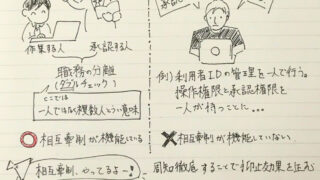 作業する人
承認する人
職務の分離
(ダブルチェック)
ここでは
一人ではなく複数人という意味
○相互牽制が機能している
相互牽制、やってるよー!
例)利用者IDの管理を一人で行う。
操作権限と承認権限を
一人が持つことに…
×相互牽制が機能していない
周知徹底することで抑止効果を